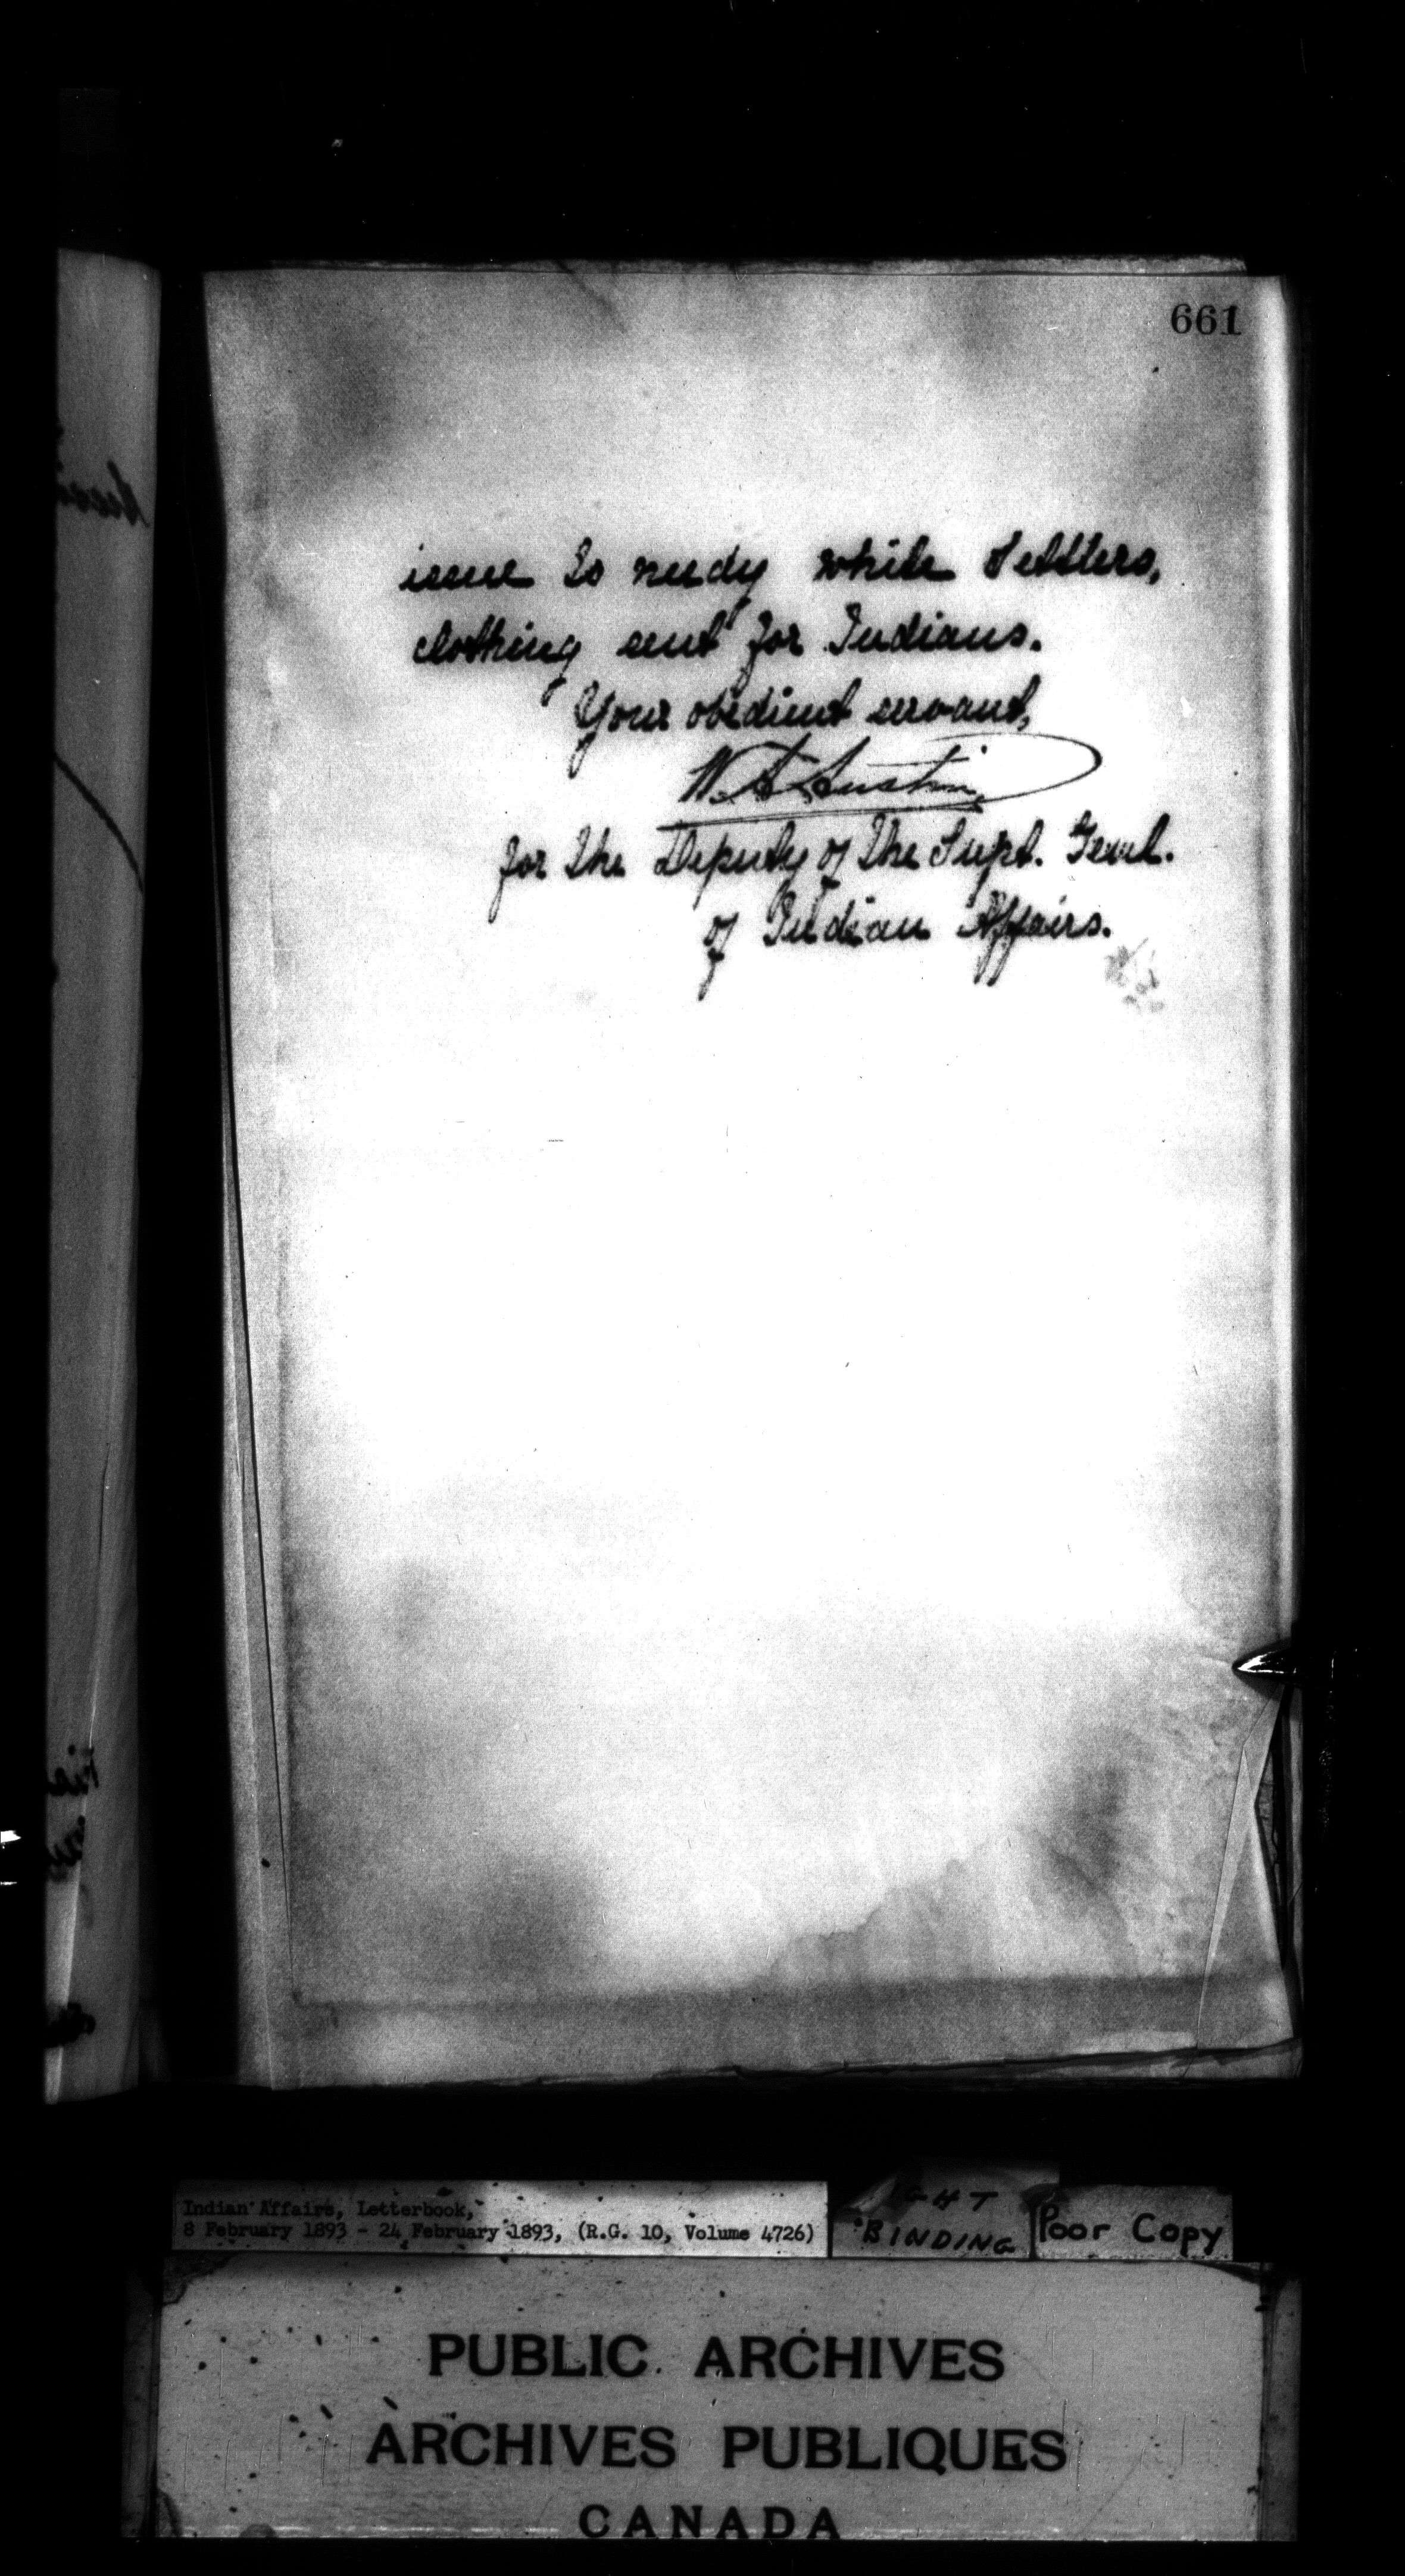 661
issue to needy white settlers,
clothing sent for Indians.
Your obedient servant,
W. A. Austin
for the Deputy of the Supt. Genl.
of Indian Affairs.
Indian Affairs, Letterbook,
8 February 1893 - 24 February 1893, (R.G. 10, Volume 4726)
BINDING
Poor Copy
PUBLIC ARCHIVES
ARCHIVES PUBLIQUES
CANADA